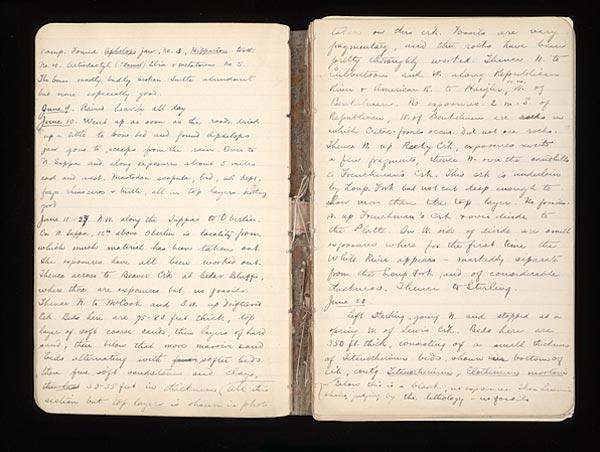 camp. Found Aphelops jaw, No. 3, Hipparion teeth
No. 4. Artiodactyl (Camel) tibia & metatarsus No 5.
The bones mostly badly broken. Turtle abundant
but none especially good.
June 9. Rained heavily all day
June 10. Went up as soon as the roads dried
up a little to bone bed and found Aphelops
jaw gone to scraps from the rain. Over to
N. Sappa and along exposures about 5 miles
east and west. Mastodon scapula, bad, not kept,
frags rhinoceros & turtle, all in top layers. Nothing
good
June 11-27 N.W. along the Sappa to Oberlin.
On N. Sappa, 12m above Oberlin is locality from
which much material has been taken out.
The exposures have all been worked out.
Thence across to Beaver Crk at Cedar Bluffs,
where there are exposures but no fossils.
Thence N. to McCook and S.W. up Driftwood
Crk. Beds here are 75-80 feet thick, top
layer of soft coarse sands, then layers of hard
sand, then below that more massive sand
beds alternating with softer beds
then fine soft sandstones and clays,
30-35 feet in thickness (all this
section but top layer is shown in photo
taken on this crk. Fossils are very
fragmentary, and the rocks have been
pretty thoroughly worked. Thence N. to
Culbertson and W. along Republican
River & American R. to Haigler, W. of
Benkelman. No exposures 2 m. S. of
Republican, W. of Benkelman are rocks in
which Cretac. fossils occur. Did not see rocks.
Thence N. up Rocky Crk, exposures with
a few fragments, thence N. over the sandhills
to Frenchman's Crk. This crk is underlain
by Loup Fork but not cut deep enough to
show more than the top layer. No fossils.
W. up Frenchman's Crk & over divide to
the Platte. On W. side of divide are small
exposures where for the first time the
White River appears – markedly separate
from the Loup Fork, and of considerable
thickness. Thence to Sterling.
June 28
Left Sterling, going N. and stopped at a
spring W. of Lewis Crk. Beds here are
350 ft. thick, consisting of a small thickness
of Titanotherium beds, shown in bottom of
Crk, contg Titanotherium,
Below this is a blank, no exposures. Then Laramie
shales, judging by the lithology – no fossils